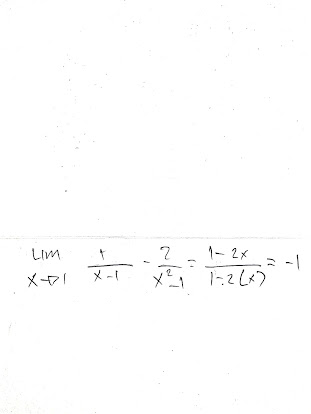 lim x→1 1/(x-1) - 2/(x²-1) = (1-2x)/(1-2(x)) = -1